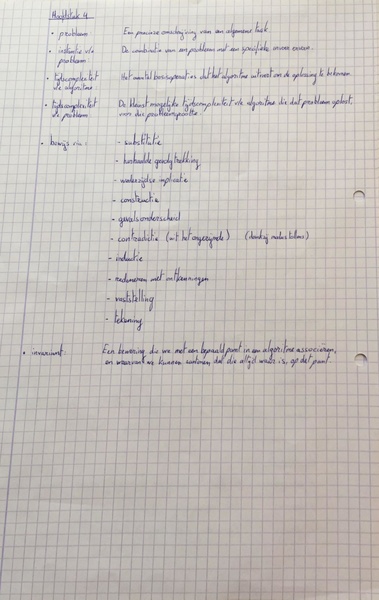 Hoofdstuk 4
• probleem Een precieze omschrijving van een algemene taak
• instantie v/e De combinatie van een probleem met een specifieke invoer ervan.
probleem
• tijdscomplexiteit Het aantal basisoperaties dat het algoritme uitvoert om de oplossing te bekomen.
v/e algoritme
• tijdscomplexiteit De kleinst mogelijke tijdscomplexiteit v/e algoritme die dat probleem oplost,
v/e probleem voor die
• bewijs via: - substitutie
- herhaalde gevolgtrekking
- wederzijdse implicatie
- constructie
- gevalsonderscheid
- contradictie (uit het ongerijmde) (dankzij modus tollens)
- inductie
- redeneren met ontkenningen
- vaststelling
- tekening
• invariant Een bewering die we met een bepaald punt in een algoritme associëren,
en waarvan we kunnen aantonen dat die altijd waar is, op dat punt.